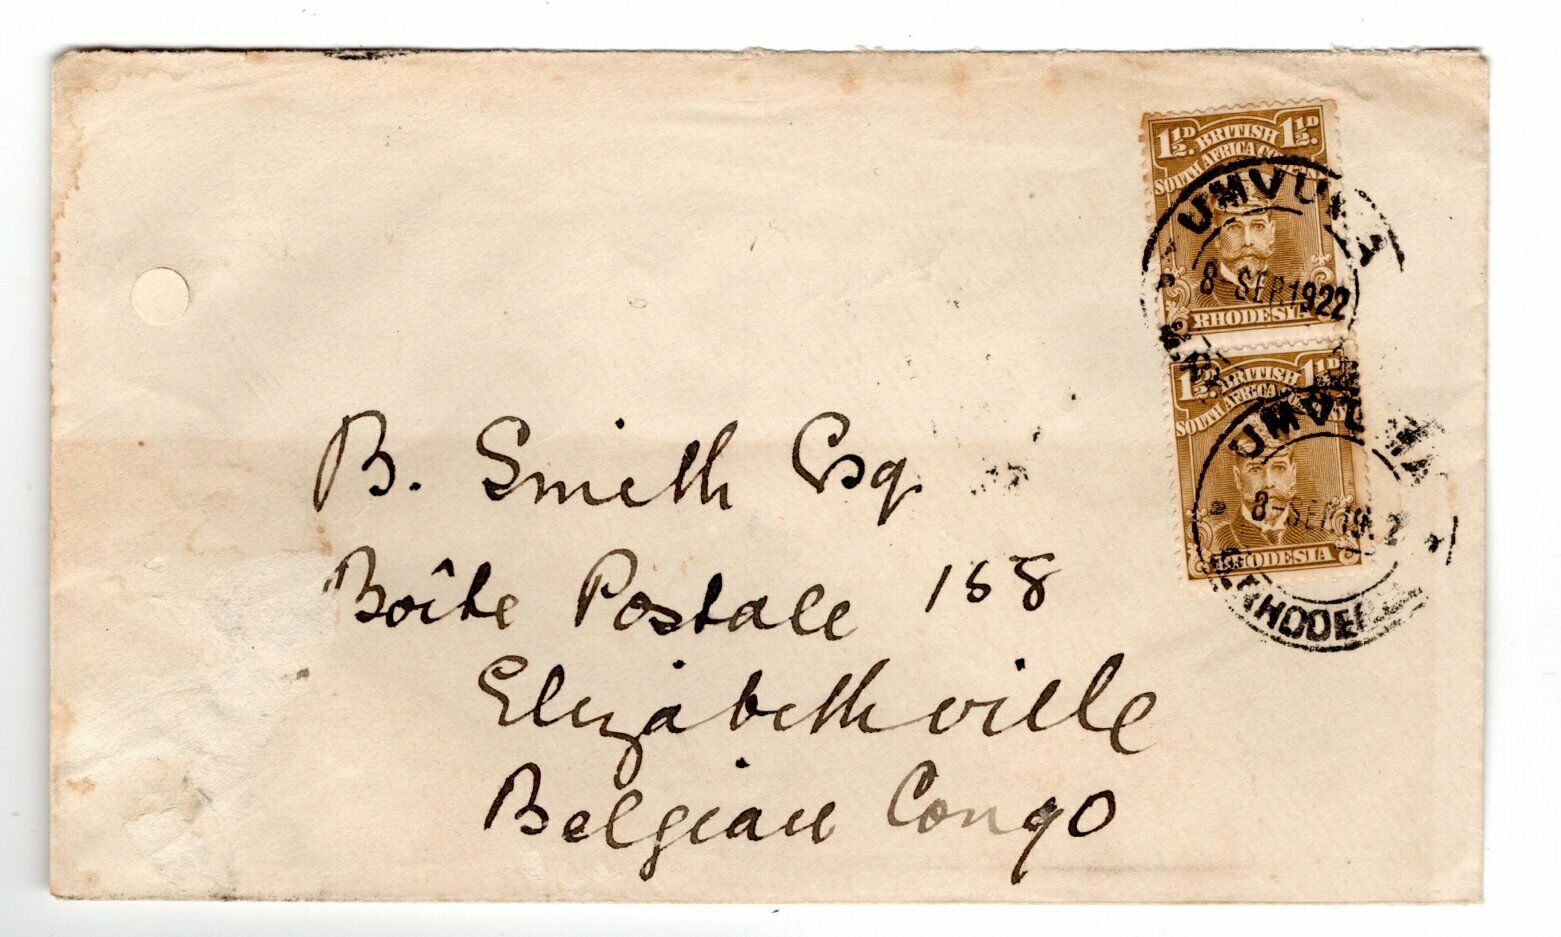 1½D. BRITISH 1½D.
SOUTH AFRICA COMPANY
RHODESIA
UMVUMA
8-SEP 1922
1½D. BRITISH 1½D.
SOUTH AFRICA COMPANY
RHODESIA
UMVUMA
8-SEP 1922
B. Smith Esq
Boîte Postale 158
Elizabethville
Belgian Congo